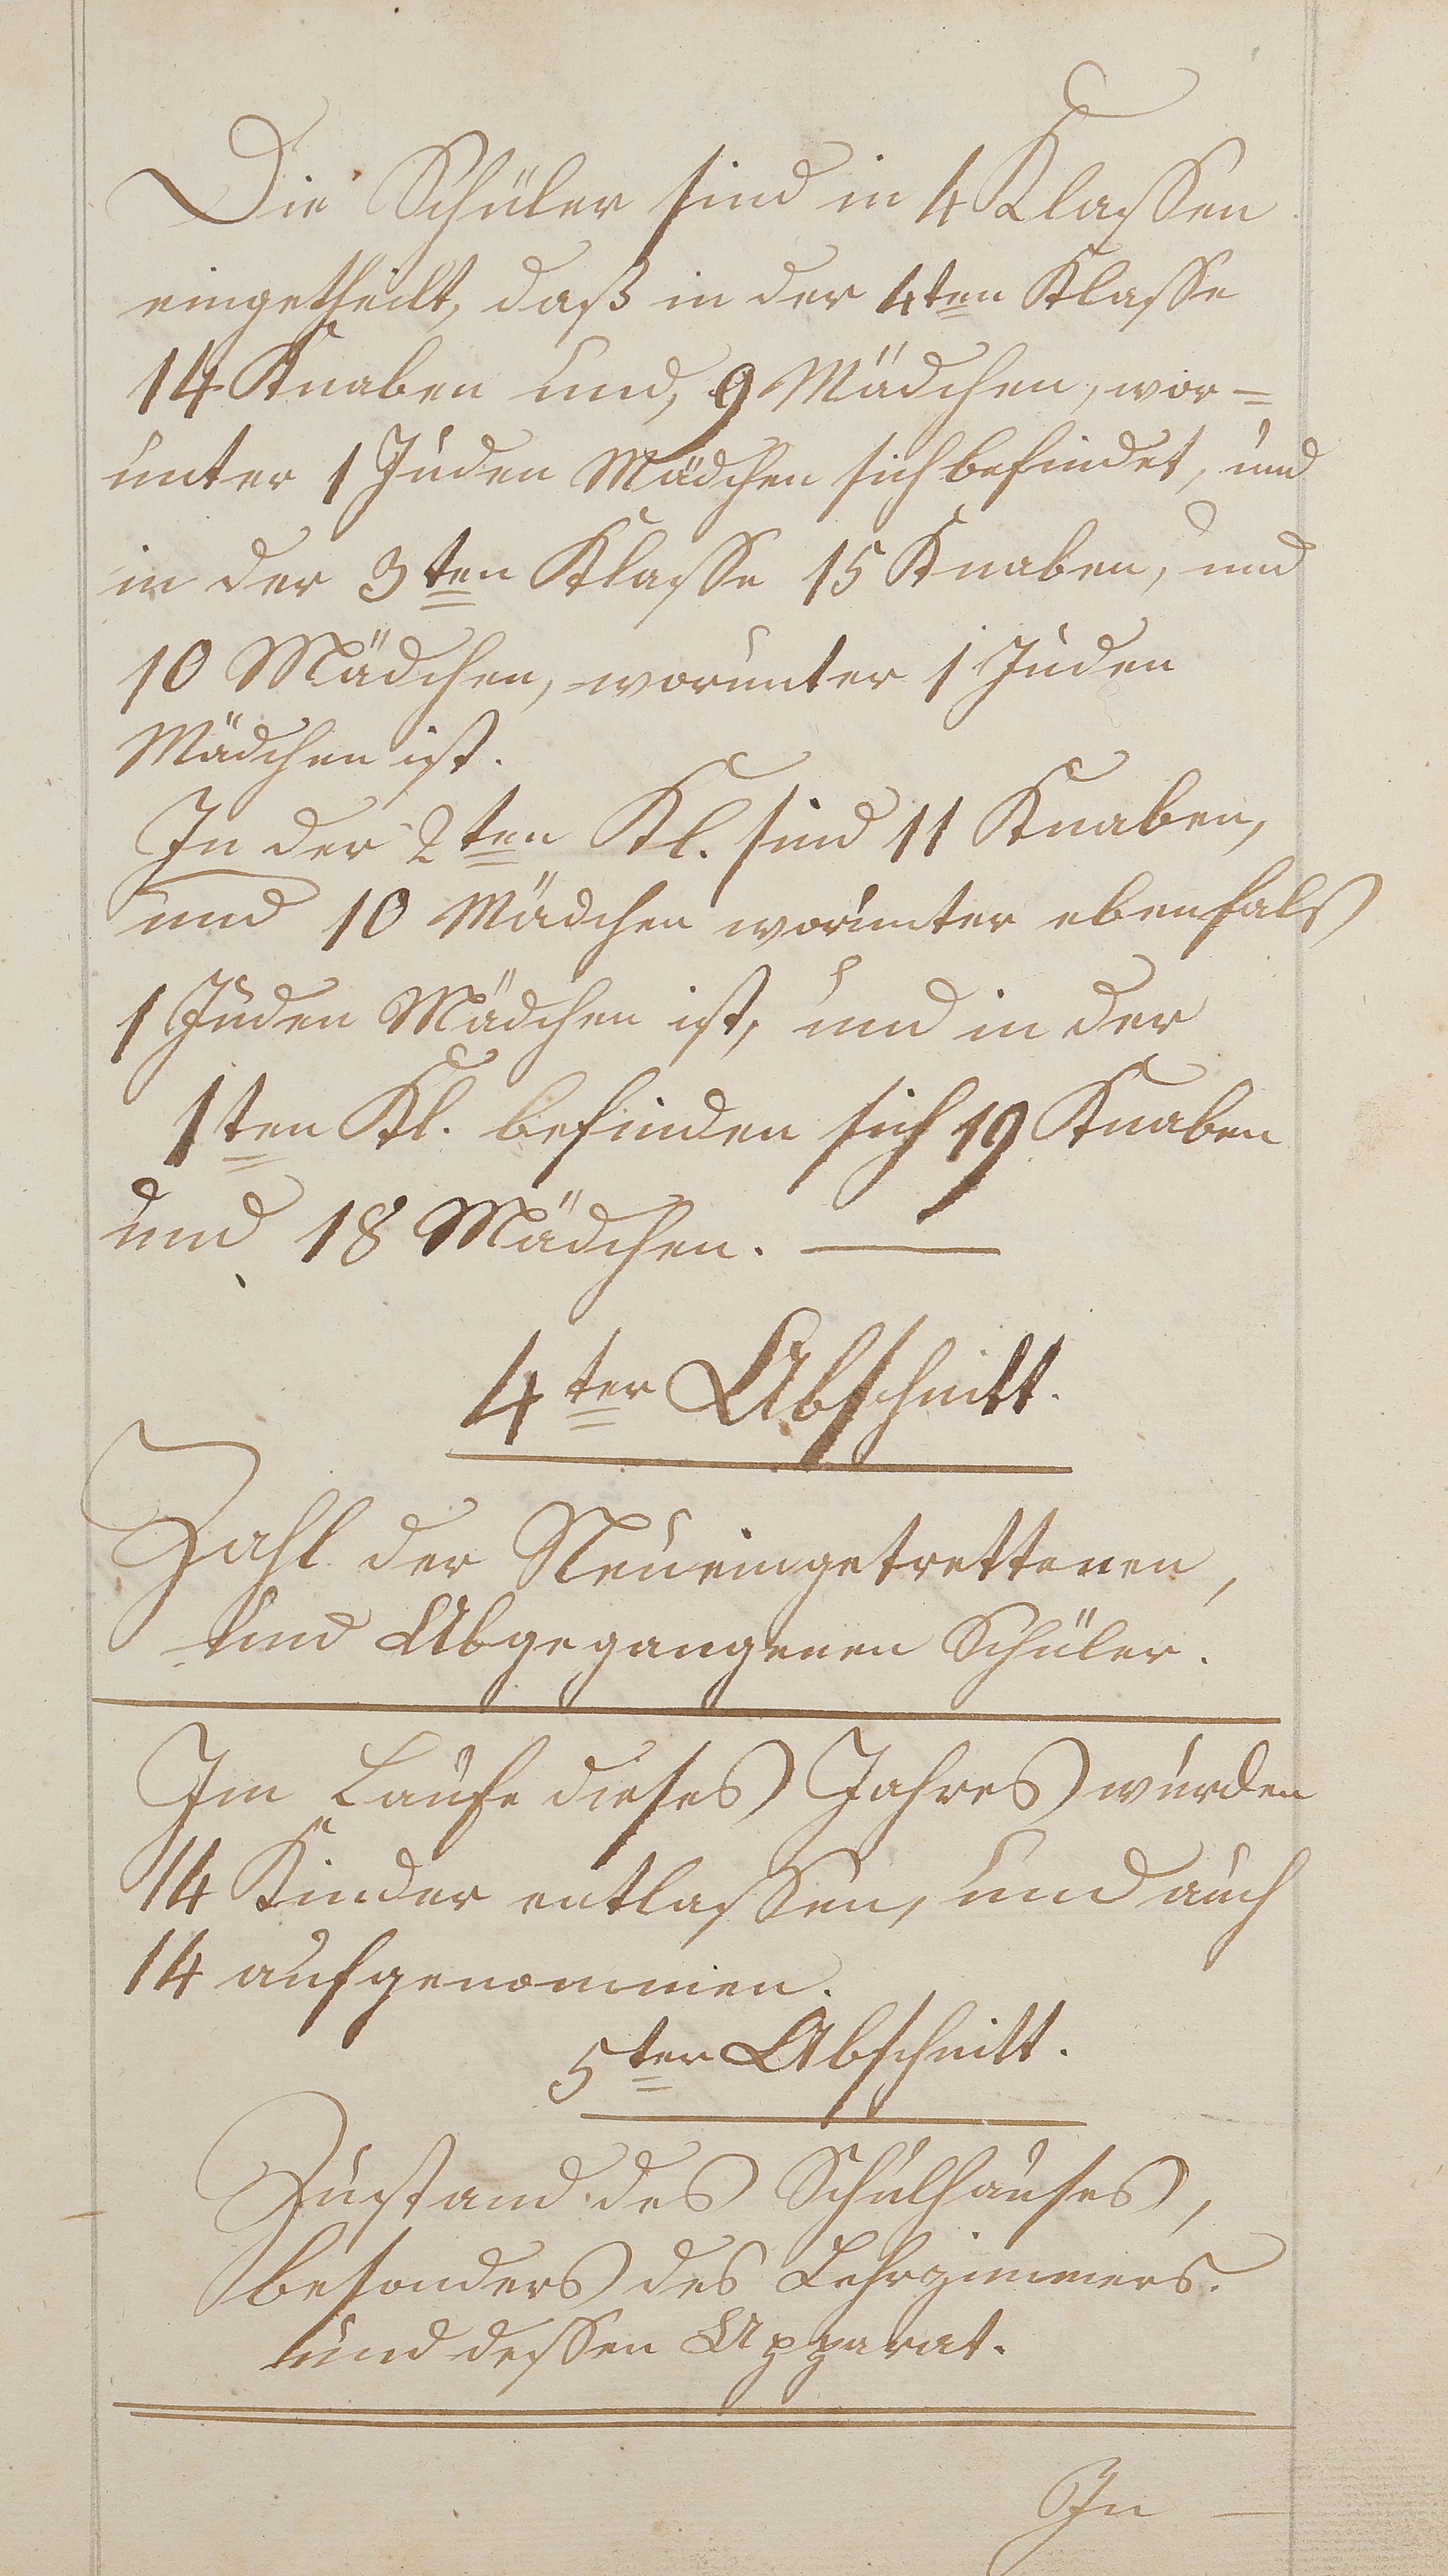 Die Schüler sind in 4 Klassen
eingetheilt, daß in der 4ten Klasse
14 Knaben und, 9 Mädchen, wor=
unter 1 Juden Mädchen sich befindet, und
in der 3ten Klasse 15 Knaben, und
10 Mädchen, worunter 1 Juden
Mädchen ist.
In der 2ten Kl. sind 11 Knaben,
und 10 Mädchen worunter ebenfals
1 Juden Mädchen ist, und in der
1ten Kl. befinden sich 19 Knaben
und 18 Mädchen. —
4ter Abschnitt.
Zahl der Neueingetrettenen,
und Abgegangenen Schüler.
Im Laufe dieses Jahres wurden
14 Kinder entlassen, und auch
14 aufgenommen.
5ter Abschnitt.
Zustand des Schulhauses,
besonders des Lehrzimmers.
und dessen Apparat.
In —